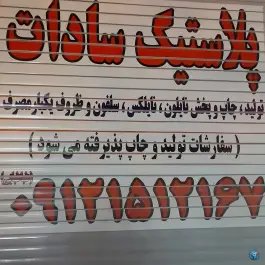 پلاستیک سادات
تولید، چاپ و پخش نایلون، نایلکس، سلفون و ظروف یکبار مصرف
(سفارشات تولید و چاپ پذیرفته می شود)
۰۹۱۲۱۵۱۲۱۶۷